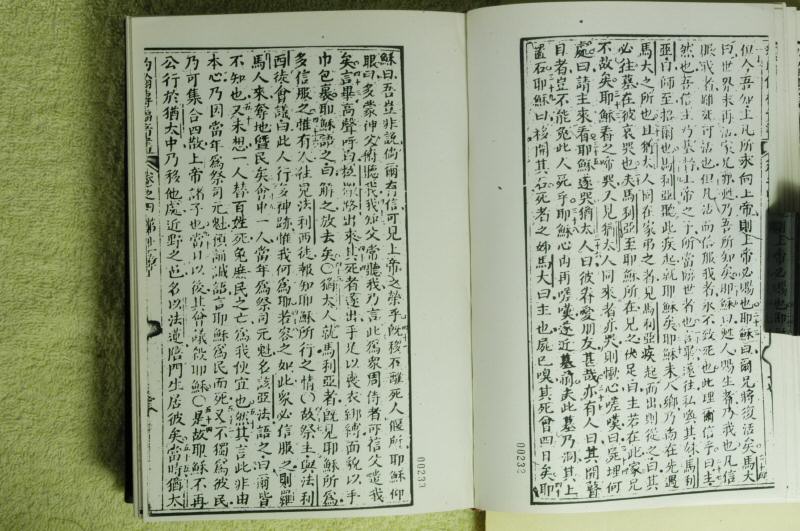 但今吾知主凡所求向上帝則上帝必賜也耶穌曰爾兄將復活矣馬大
曰世界末再活家兄亦然乃吾所知矣耶穌曰甦人賜生者乃我也凡信
服我者雖死可活也但凡活而信服我者永不致死也此理爾信乎曰主
然也吾信主乃基督上帝之子所當臨世者也言畢遂往私喚其妹馬利
亞曰師至招爾也馬利亞聽此疾起就耶穌矣耶穌未入鄉乃尚在先遇
馬大之所也且猶太人同在家弔之者見馬利亞疾起而出則從之曰其
必往墓在彼哀哭也夫馬利亞至耶穌所在見之伏足曰主若在此家兄
不故矣耶穌看之啼哭又見猶太人同來者亦哭則慟心嗟嘆曰塟埋何
處曰請主來看耶穌遂哭猶太人曰彼眷愛朋友甚哉亦有人曰其開瞽
目者豈不能免此人死乎耶穌心內再嗟嘆遂近墓前夫此墓乃洞其上
置石耶穌曰移開其石死者之姊馬大曰主也屍已嗅其死曾四日矣耶
00232
穌曰吾豈非說倘爾有信可見上帝之榮乎旣移石離死人㕓所耶穌仰
眼曰多蒙神父俯聽我我知父常聽我乃言此爲衆周侍者可信父遣我
矣言畢高聲呼曰拉撒路出來其死者遂出手足以喪衣綁縛面貌以手
巾包裹耶穌語之曰解之放去矣猶太人就馬利亞者旣見耶穌所爲
多信服之惟有人往見法利西徒報知耶穌所行之情故祭主與法利
西徒會議曰此人行多神跡惟我何爲耶若容之如此家必信服之則羅
馬人來奪地曁民矣會中一人當年爲祭司元魁名該亞法語之曰爾皆
不知也又未想一人替百姓死免庶民之亡爲我便宜也然其言此非由
本心乃因當年爲祭司元魁預諭讖語言耶穌爲民而死又不獨爲彼民
乃可集合四散上帝諸子也當日以後其會議殺耶穌是故耶穌不再
公行於猶太中乃移他處近野之邑名以法蓮偕門生居彼矣當時猶太
00233